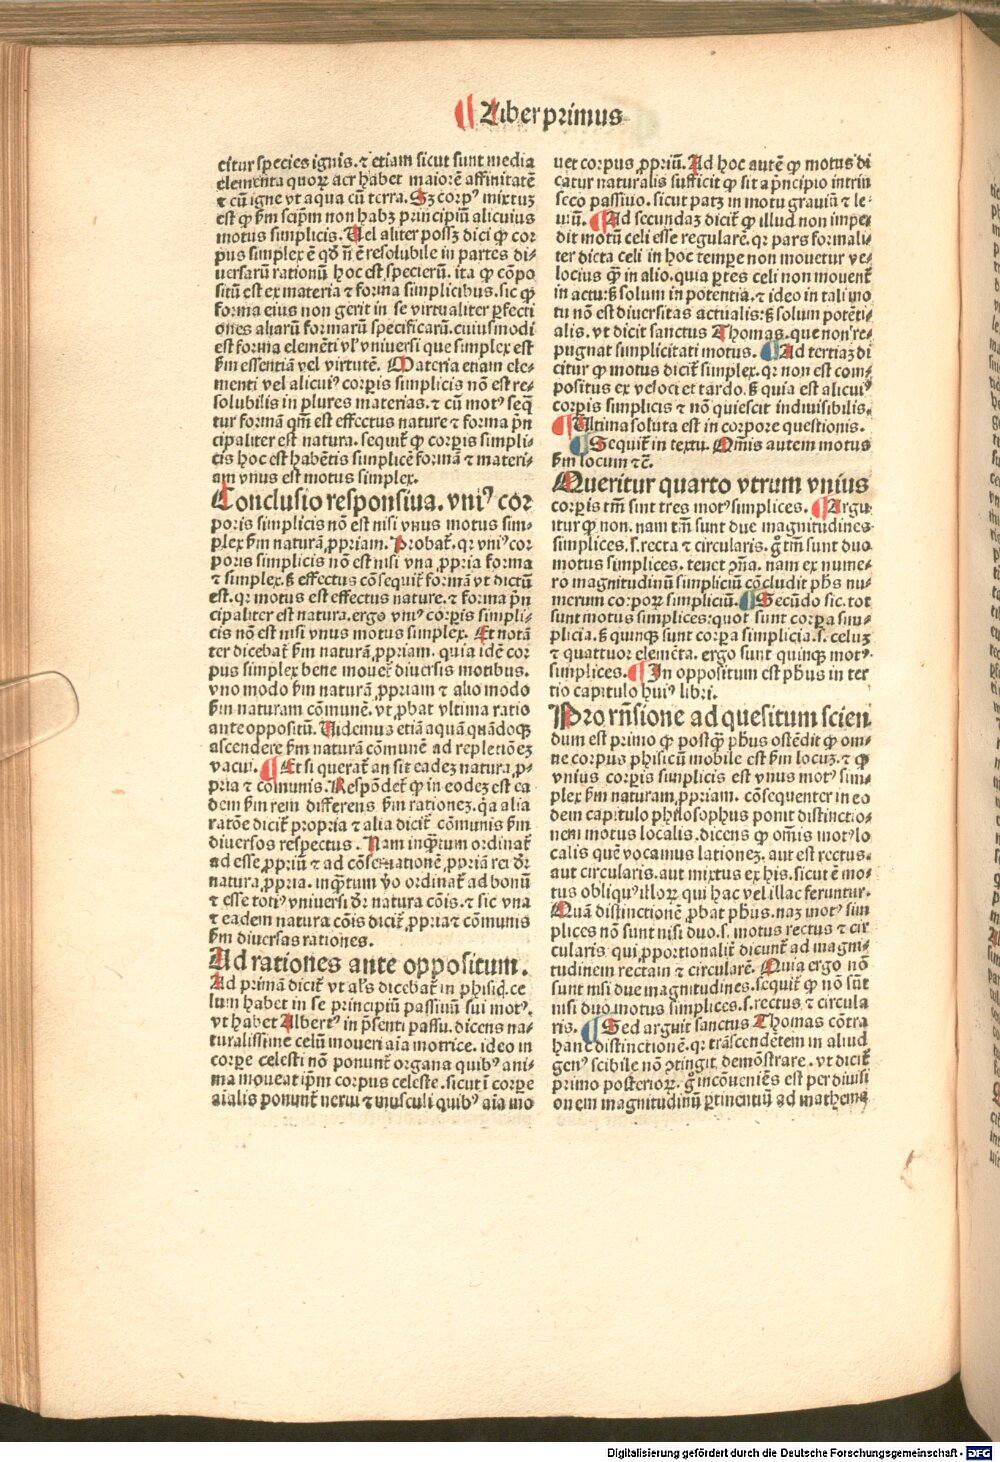 Liber primus
citur species ignis. ⁊ etiam sicut sunt media
elementa quoꝝ aer habet maiorē affinitatē
⁊ cū igne vt aqua cū terra. Sꝫ corpꝰ mixtuꝫ
est ꝙ ẜm seip̄m non habꝫ principiū alicuius
motus simplicis. Uel aliter possꝫ dici ꝙ cor
pus simplex ē qđ n̄ ē resolubile in partes di⸗
uersarū rationū hoc est specierū. ita ꝙ cōpo
sitū est ex materia ⁊ forma simplicibus. sic ꝙ
forma eius non gerit in se virtualiter ꝑfecti
ones aliarū formarū specificarū. cuiusmodi
est forma elemēti vl̓ vniuersi que simplex est
ẜm essentiā vel virtutē. Materia etiam ele⸗
menti vel alicuiꝰ corꝑis simplicis nō est re⸗
solubilis in plures materias. ⁊ cū motꝰ seq̄
tur formā qm̄ est effectus nature ⁊ forma p̄n
cipaliter est natura. sequit̄ ꝙ corꝑis simpli⸗
cis hoc est habētis simplicē formā ⁊ materi⸗
am vnus est motus simplex.
Conclusio responsiua. vniꝰ cor
poris simplicis nō est nisi vnus motus sim⸗
plex ẜm naturā ꝓpriam. Probat̄. qꝛ vniꝰ cor
poris simplicis nō est nisi vna ꝓpria forma
⁊ simplex. ꝫ effectus cōsequit̄ formā vt dictū
est. qꝛ motus est effectus nature. ⁊ forma p̄n
cipaliter est natura. ergo vniꝰ corꝑis simpli⸗
cis nō est nisi vnus motus simplex. Et notā
ter dicebat̄ ẜm naturā ꝓpriam. quia idē cor
pus simplex bene mouet̄ diuersis motibus.
vno modo ẜm naturā ꝓpriam ⁊ alio modo
ẜm naturam cōmunē. vt ꝓbat vltima ratio
ante oppositū. Uidemus etiā aquā quādoqꝫ
ascendere ẜm naturā cōmunē ad repletiōeꝫ
vacui. Et si querat̄ an sit eadeꝫ natura ꝓ⸗
pria ⁊ cōmunis. Respōdet̄ ꝙ in eodeꝫ est ea
dem ẜm rem differens ẜm rationeꝫ. q̄a alia
ratōe dicit̄ propria ⁊ alia dicit̄ cōmunis ẜm
diuersos respectus. Nam inqꝫtum ordinat̄
ad esse ꝓpriū ⁊ ad cōseruationē ꝓpriā rei dr̄
natura ꝓpria. inqꝫtum v̄o ordinat̄ ad bonū
⁊ esse totiꝰ vniuersi dr̄ natura cōis. ⁊ sic vna
⁊ eadem natura cōis dicit̄ ꝓpria ⁊ cōmunis
ẜm diuersas rationes.
Ad rationes ante oppositum.
Ad primā dicit̄ vt al̓s dicebat̄ in phisic. ce
lum habet in se principiū passiuū sui motꝰ.
vt habet Albertꝰ in p̄senti passu. dicens na⸗
turalissime celū moueri aīa motrice. ideo in
corꝑe celesti nō ponunt̄ organa quibꝰ ani⸗
ma moueat ip̄m corpus celeste. sicut ī corꝑe
aīalis ponunt̄ nerui ⁊ musculi quibꝰ aīa mo
uet corpus ꝓpriū. Ad hoc autē ꝙ motus di
catur naturalis sufficit ꝙ sit a p̄ncipio intrin
seco passiuo. sicut patꝫ in motu grauiū ⁊ le⸗
uiū. Ad secundaꝫ dicit̄ ꝙ illud non impe⸗
dit motū celi esse regularē. qꝛ pars formali⸗
ter dicta celi in hoc tempe non mouetur ve⸗
locius qꝫ in alio. quia ꝑtes celi non mouent̄
in actu: ꝫ solum in potentia. ⁊ ideo in tali mo
tu nō est diuersitas actualis: ꝫ solum potēti⸗
alis. vt dicit sanctus Thomas. que non re⸗
pugnat simplicitati motus. Ad tertiaꝫ di
citur ꝙ motus dicit̄ simplex. qꝛ non est com⸗
positus ex veloci et tardo. ꝫ quia est alicuiꝰ
corꝑis simplicis ⁊ nō quiescit indiuisibilis.
Ultima soluta est in corpore questionis.
Sequit̄ in textu. Om̄is autem motus
ẜm locum ⁊c̄.
Queritur quarto vtrum vnius
corꝑis tm̄ sint tres motꝰ simplices. Argu
itur ꝙ non. nam tm̄ sunt due magnitudines
simplices. s. recta ⁊ circularis. g̊ tm̄ sunt duo
motus simplices. tenet ꝯn̄a. nam ex nume⸗
ro magnitudinū simpliciū cōcludit ph̄s nu⸗
merum corpoꝝ simpliciū. Secūdo sic. tot
sunt motus simplices: quot sunt corꝑa sim⸗
plicia. ꝫ quinqꝫ sunt corꝑa simplicia. s. celuꝫ
⁊ quattuor elemēta. ergo sunt quinqꝫ motꝰ
simplices. In oppositum est ph̄us in ter
tio capitulo huiꝰ libri.
Pro rn̄sione ad quesitum scien
dum est primo ꝙ postqꝫ ph̄us ostēdit ꝙ om⸗
ne corpus phisicū mobile est ẜm locuꝫ. ⁊ ꝙ
vnius corꝑis simplicis est vnus motꝰ sim⸗
plex ẜm naturam ꝓpriam. cōsequenter in eo
dem capitulo philosophus ponit distinctio⸗
nem motus localis. dicens ꝙ om̄is motꝰ lo
calis quē vocamus lationeꝫ. aut est rectus.
aut circularis. aut mixtus ex his. sicut ē mo⸗
tus obliquꝰ illoꝝ qui hac vel illac feruntur.
Quā distinctionē ꝓbat ph̄us. naꝫ motꝰ sim
plices nō sunt nisi duo. s. motus rectus ⁊ cir
cularis. qui ꝓportionalit̄ dicunt̄ ad magni⸗
tudinem rectam ⁊ circularē. Quia ergo nō
sunt nisi due magnitudines. sequit̄ ꝙ nō sūt
nisi duo motus simplices. s. rectus ⁊ circula
ris. Sed arguit sanctus Thomas cōtra
hanc distinctionē. qꝛ trāscendētem in aliud
genꝰ scibile nō ꝯtingit demōstrare. vt dicit̄
primo posterioꝝ. g̊ incōueniēs est per diuisi
onem magnitudinū ꝑtinentiū ad mathema
Digitalisierung gefördert durch die Deutsche Forschungsgemeinschaft - DFG